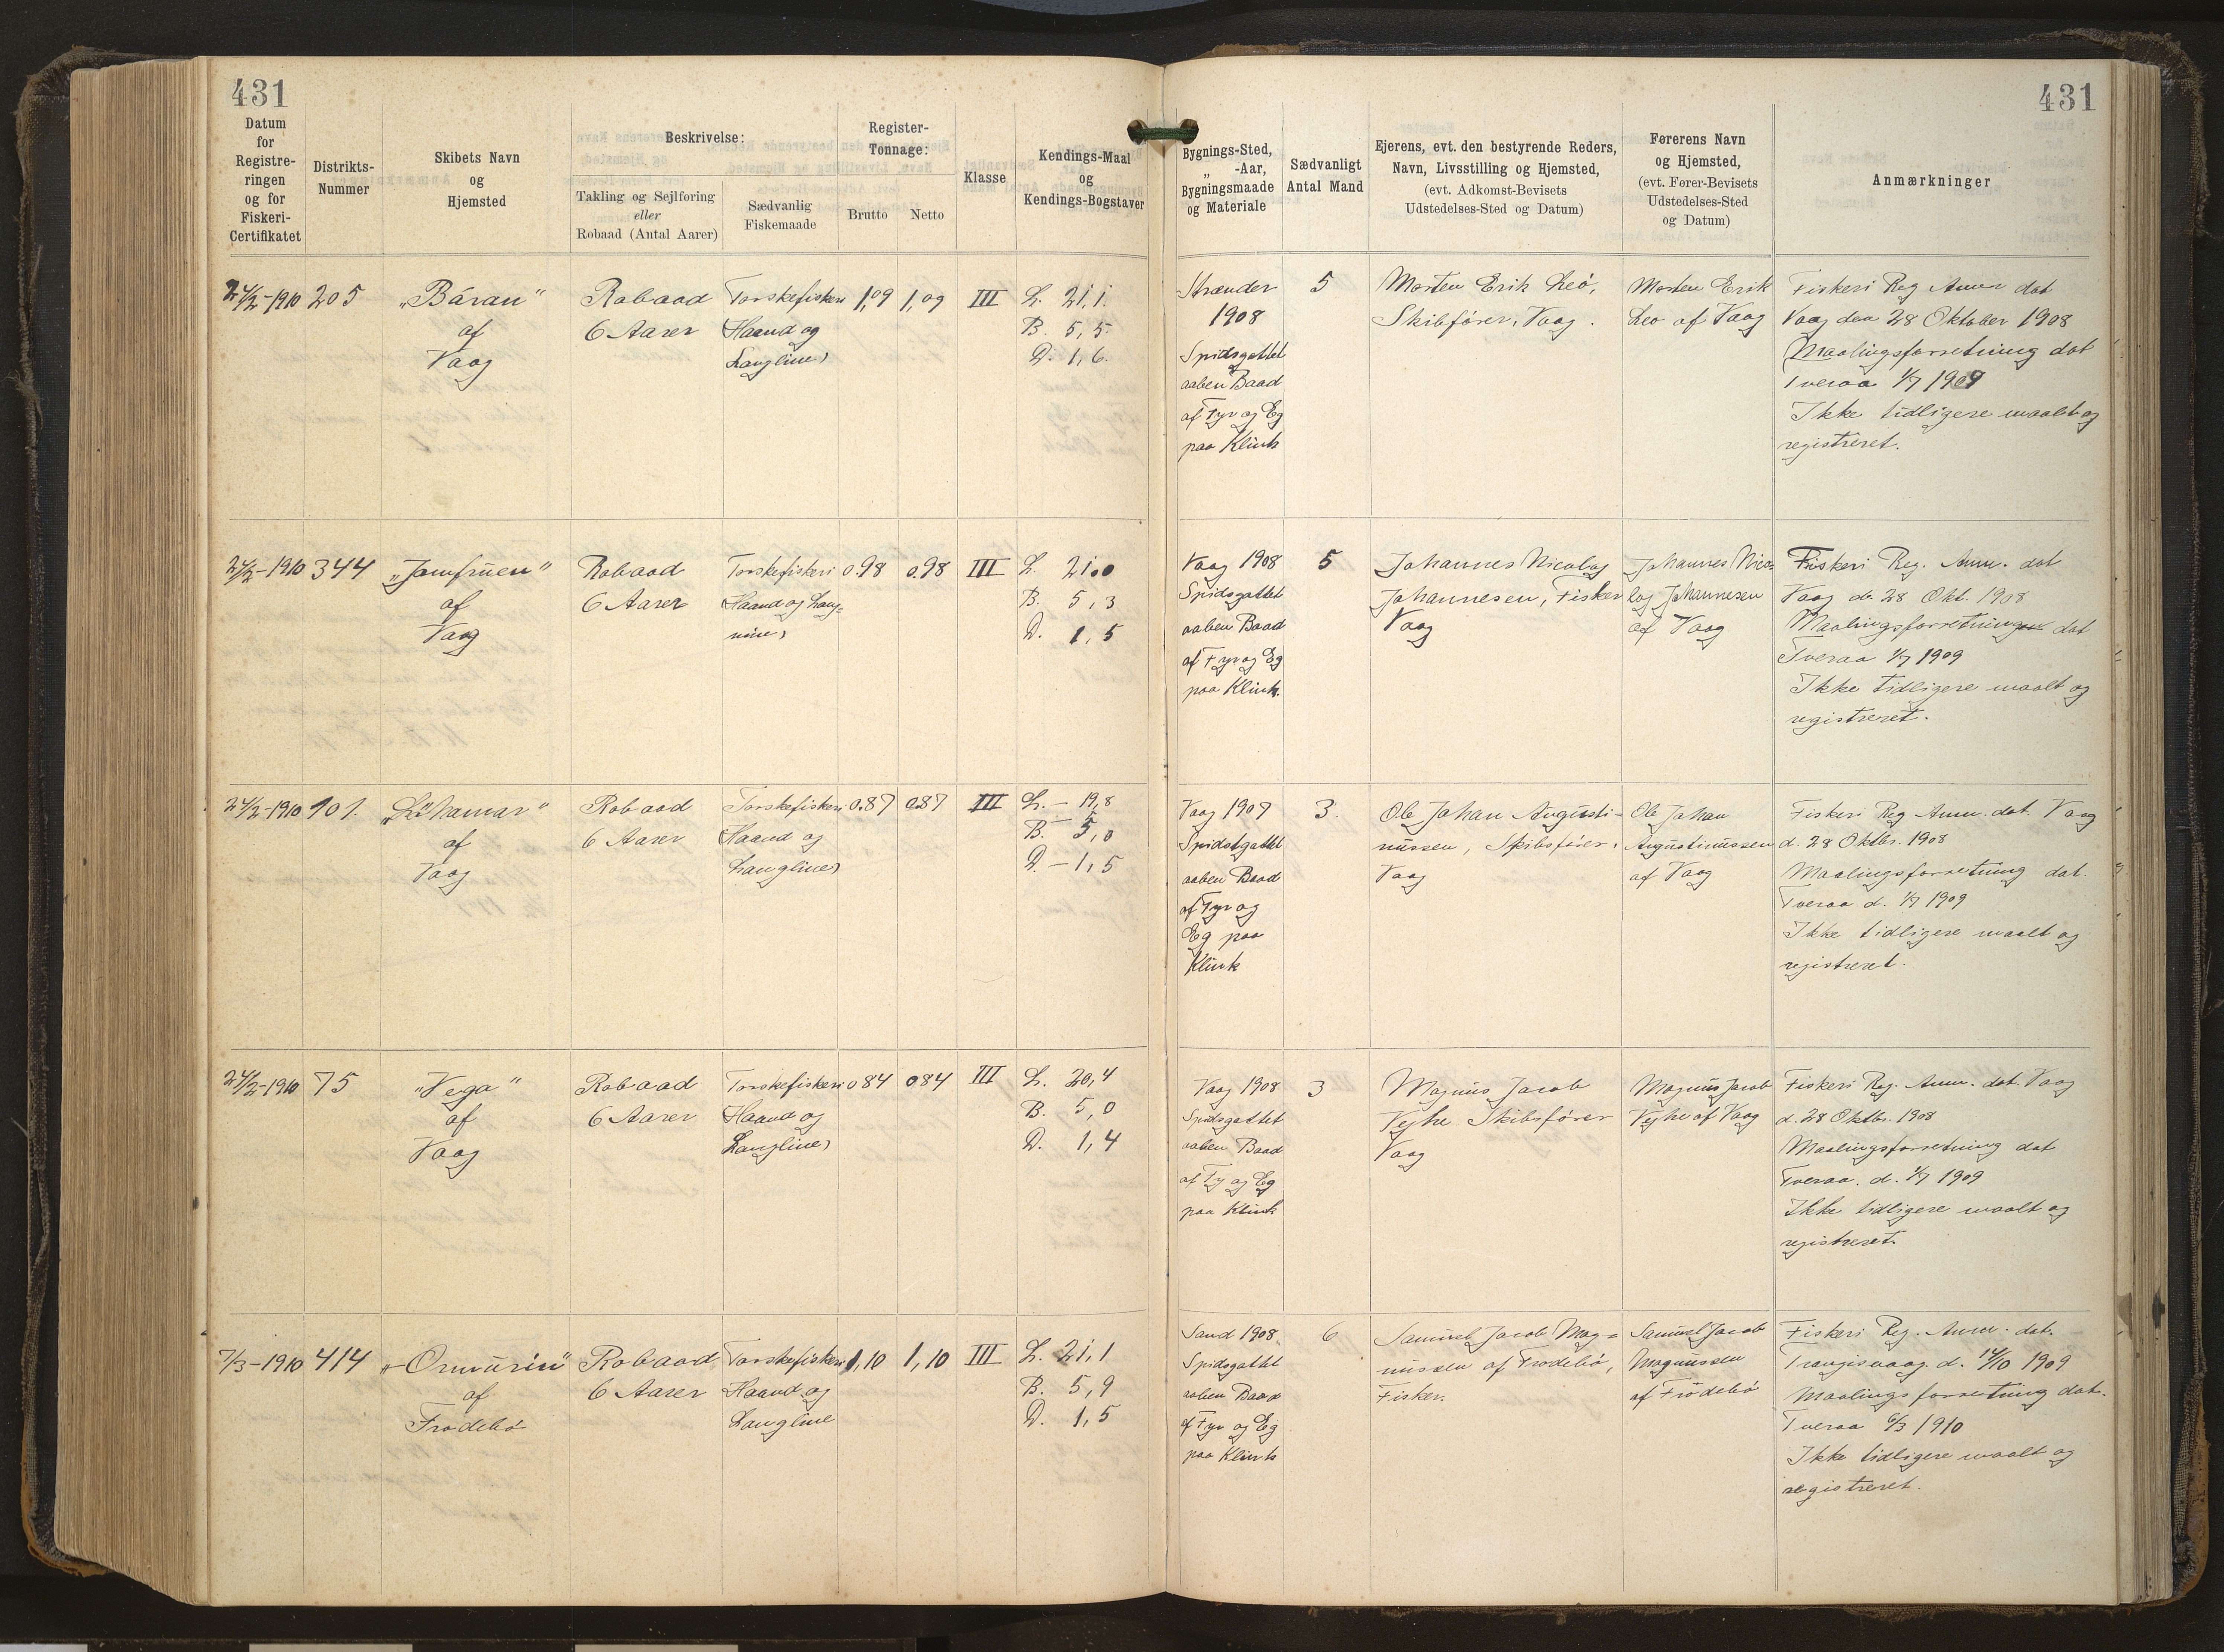 431
431
Datum
for
Registre-
ringen
og for
Fiskeri-
Certifikatet
Distrikts-
Nummer
Skibets Navn
og
Hjemsted
Beskrivelse:
Takling og Sejlføring
eller
Robaad (Antal Aarer)
Sædvanlig
Fiskemaade
Register-
Tonnage:
Brutto
Netto
Klasse
Kendings-Maal
og
Kendings-Bogstaver
Bygnings-Sted,
„ -Aar,
Bygningsmaade
og Materiale
Sædvanligt
Antal Mand
Ejerens, evt. den bestyrende Reders,
Navn, Livsstilling og Hjemsted,
(evt. Adkomst-Bevisets
Udstedelses-Sted og Datum)
Førerens Navn
og Hjemsted,
(evt. Fører-Bevisets
Udstedelses-Sted
og Datum)
Anmærkninger
24/2-1910
205
„Báran“
af
Vaag
Robaad
6 Aarer
Torskefiskeri
Haand og
Langline)
1,09
1,09
III
L. 21,1.
B. 5,5
D. 1,6.
Strænder
1908
Spidsgattet
aaben Baad
af Fyr og Eg
paa Klink
5
Morten Erik Leó,
Skibfører, Vaag.
Morten Erik
Leo af Vaag
Fiskeri Reg Anm dat
Vaag den 28 Oktober 1908
Maalingsforretning dat
Tveraa 1/7 1909
Ikke tidligere maalt og
registreret.
24/2-1910
344
„Jomfruen“
af
Vaag
Robaad
6 Aarer
Torskefiskeri
Haand og Lang=
0.98
0.98
III
L. 21.0
B. 5,3
D. 1,5
Vaag 1908
Spidsgattet
aaben Baad
af Fyr og Eg
paa Klink.
5
Johannes Nicolaj
Johannesen, Fisker
Vaag
Johannes Nico=
laj Johannesen
af Vaag
Fiskeri Reg. Anm. dat
Vaag d. 28 Okt. 1908
Maalingsforretning dat
Tveraa 1/7 1909
Ikke tidligere maalt og
registreret.
24/2-1910
101.
af
Vaag
Robaad
6 Aarer
Torskefiskeri
Haand og
Langline)
0.87
0.87
III
L. — 19,8
B. 5,0
D — 1,5
Vaag 1907
Spidsgattet
aaben Baad
af Fyr og
Eg paa
Klink
3.
Ole Johan Augusti=
nussen, Skibsfører,
Vaag
Ole Johan
Augustinussen
af Vaag
Fiskeri Reg Anm. dat. Vaag
d. 28 Oktbr. 1908
Maalingsforretning dat.
Tveraa d. 1/7 1909
Ikke tidligere maalt og
registreret.
24/2-1910
75
„Vega“
af
Vaag
Robaad
6 Aarer
Torskefiskeri
Haand og
Langline)
0 84
0 84
III
L. 20,4
B. 5,0
D. 1,4
Vaag 1908
Spidsgattet
aaben Baad
af Fy og Eg
paa Klink
3
Magnus Jacob
Vejhe Skibsfører
Vaag
Magnus Jacob
Vejhe af Vaag
Fiskeri Reg. Anm. dat. Vaag
d. 28 Oktbr. 1908
Maalingsforretning dat
Tveraa. d. 1/7 1909
Ikke tidligere maalt og
registreret.
7/3-1910
414
„Ormurin“
af
Frodebø
Robaad
6 Aarer
Torskefiskeri
Haand og
Langline
1,10
1,10
III
L. 21,1
B. 5,9
D. 1,5
Sand 1908.
Spidsgattet
aaben Baad
af Fyr og Eg
paa Klink
6
Samuel Jacob Mag=
nussen af Frodebø,
Fisker.
Samuel Jacob
Magnussen
af Frodebø
Fiskeri Reg. Anm. dat.
Trangisvaag. d. 14/10 1909
Maalingsforretning dat.
Tveraa 6/3 1910
Ikke tidligere maalt og
registreret.